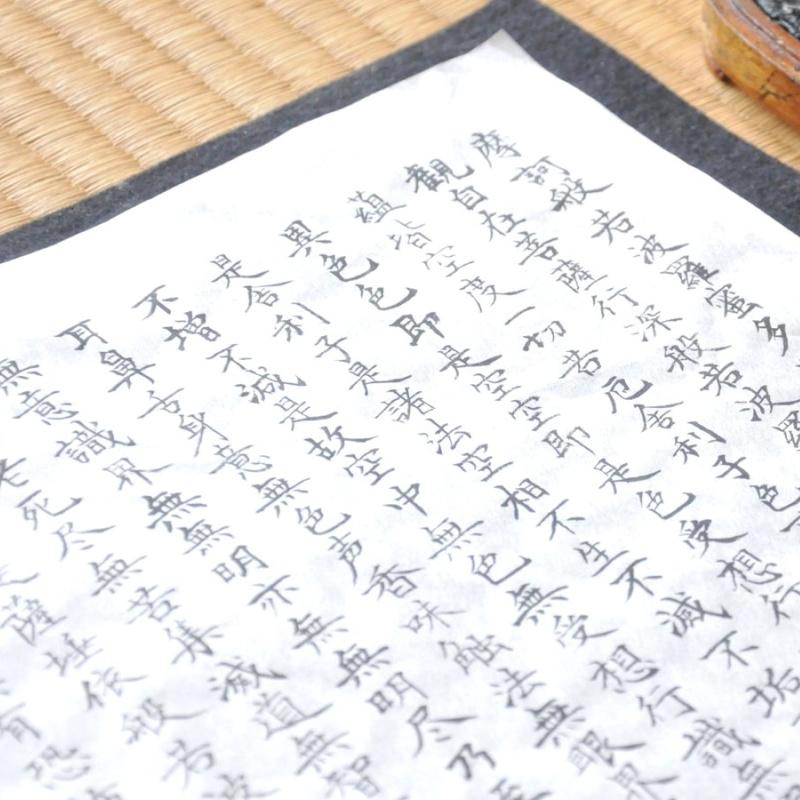 摩訶般若波羅蜜多
観自在菩薩行深般若波羅
蘊皆空度一切苦厄舎利子色
異色色即是空空即是色受想行
是舎利子是諸法空相不生不滅不垢
不増不減是故空中無色無受想行識無
耳鼻舌身意無色声香味触法無眼界
無意識界無無明亦無無明尽乃至
老死尽無苦集滅道無智
薩埵依般若波
有恐